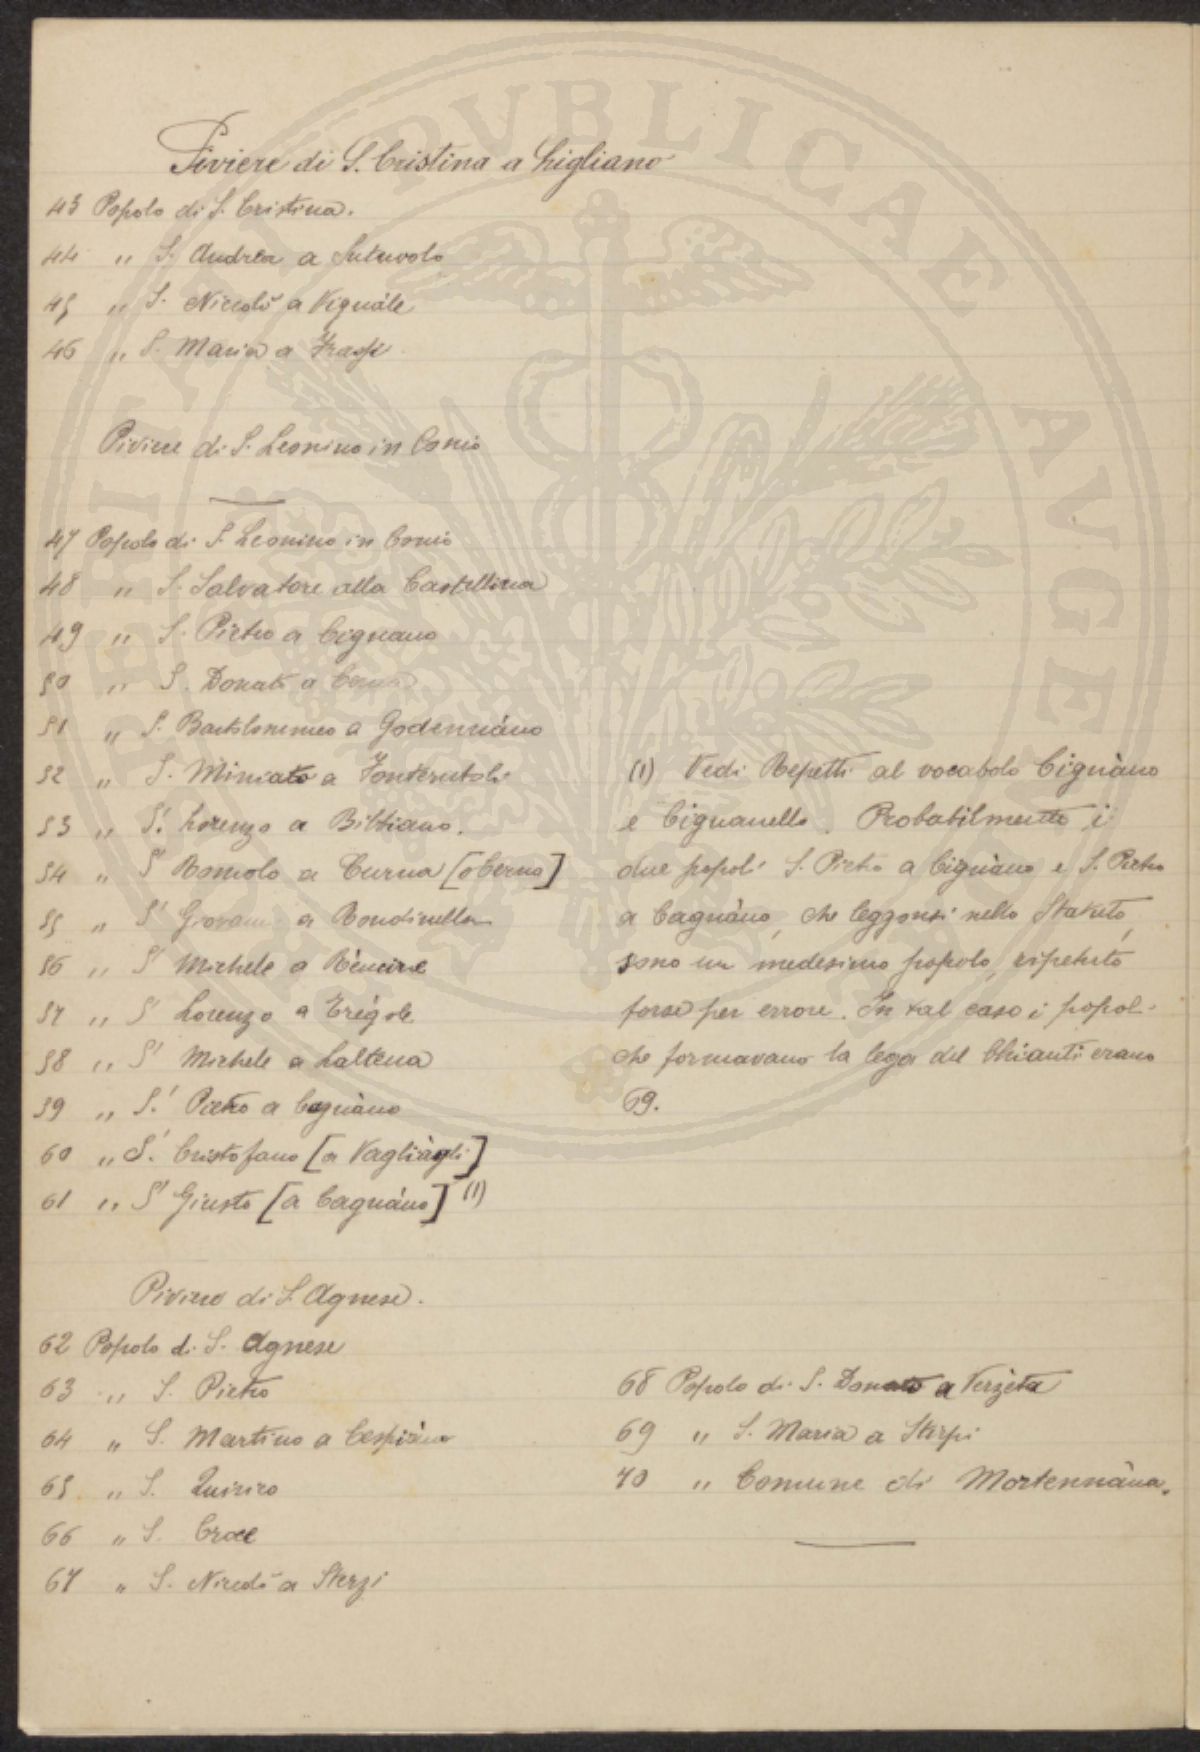 Piviere di S. Cristina a Ligliano
43 Popolo di S. Cristina.
44 " S. Andrea a
45 " S. Niccolò a Vignále
46 " S. Maria a
Piviere di S. Leonino in Conio
47 Popolo di S. Leonino in Conio
48 " S. Salvatore alla Castellina
49 " S. Pietro a Cignano
50 " S. Donato a
51 " S. Bartolommeo a Godennáno
52 " S. Miniato a Fonterutoli
53 " S. Lorenzo a Bibbiano.
54 " S. Romolo a Curna [o Cerna]
55 " S. Giovanni a Rondinella
56 " S. Michele a Réncine
57 " S. Lorenzo a Grégole
58 " S. Michele a Laltena
59 " S. Pietro a Cagnáno
60 " S. Cristofano [a Vagliágli]
61 " S. Giusto [a Cagnáno] (1)
(1) Vedi Repetti al vocabolo Cignáno
e Cignanello. Probabilmente i
due popoli S. Pietro a Cignáno e S. Pietro
a Cagnáno, che leggonsi nello Statuto,
sono un medesimo popolo, ripetuto
forse per errore. In tal caso i popoli
che formavano la lega del Chianti erano
69.
Piviere di S. Agnese.
62 Popolo di S. Agnese
63 " S. Pietro
64 " S. Martino a Cespiáno
65 " S. Quirico
66 " S. Croce
67 " S. Niccolò a Sterzi
68 Popolo di S. Donato a Verzéta
69 " S. Maria a Stirpi
70 " Comune di Mortennána.
PUBLICAE AUGE